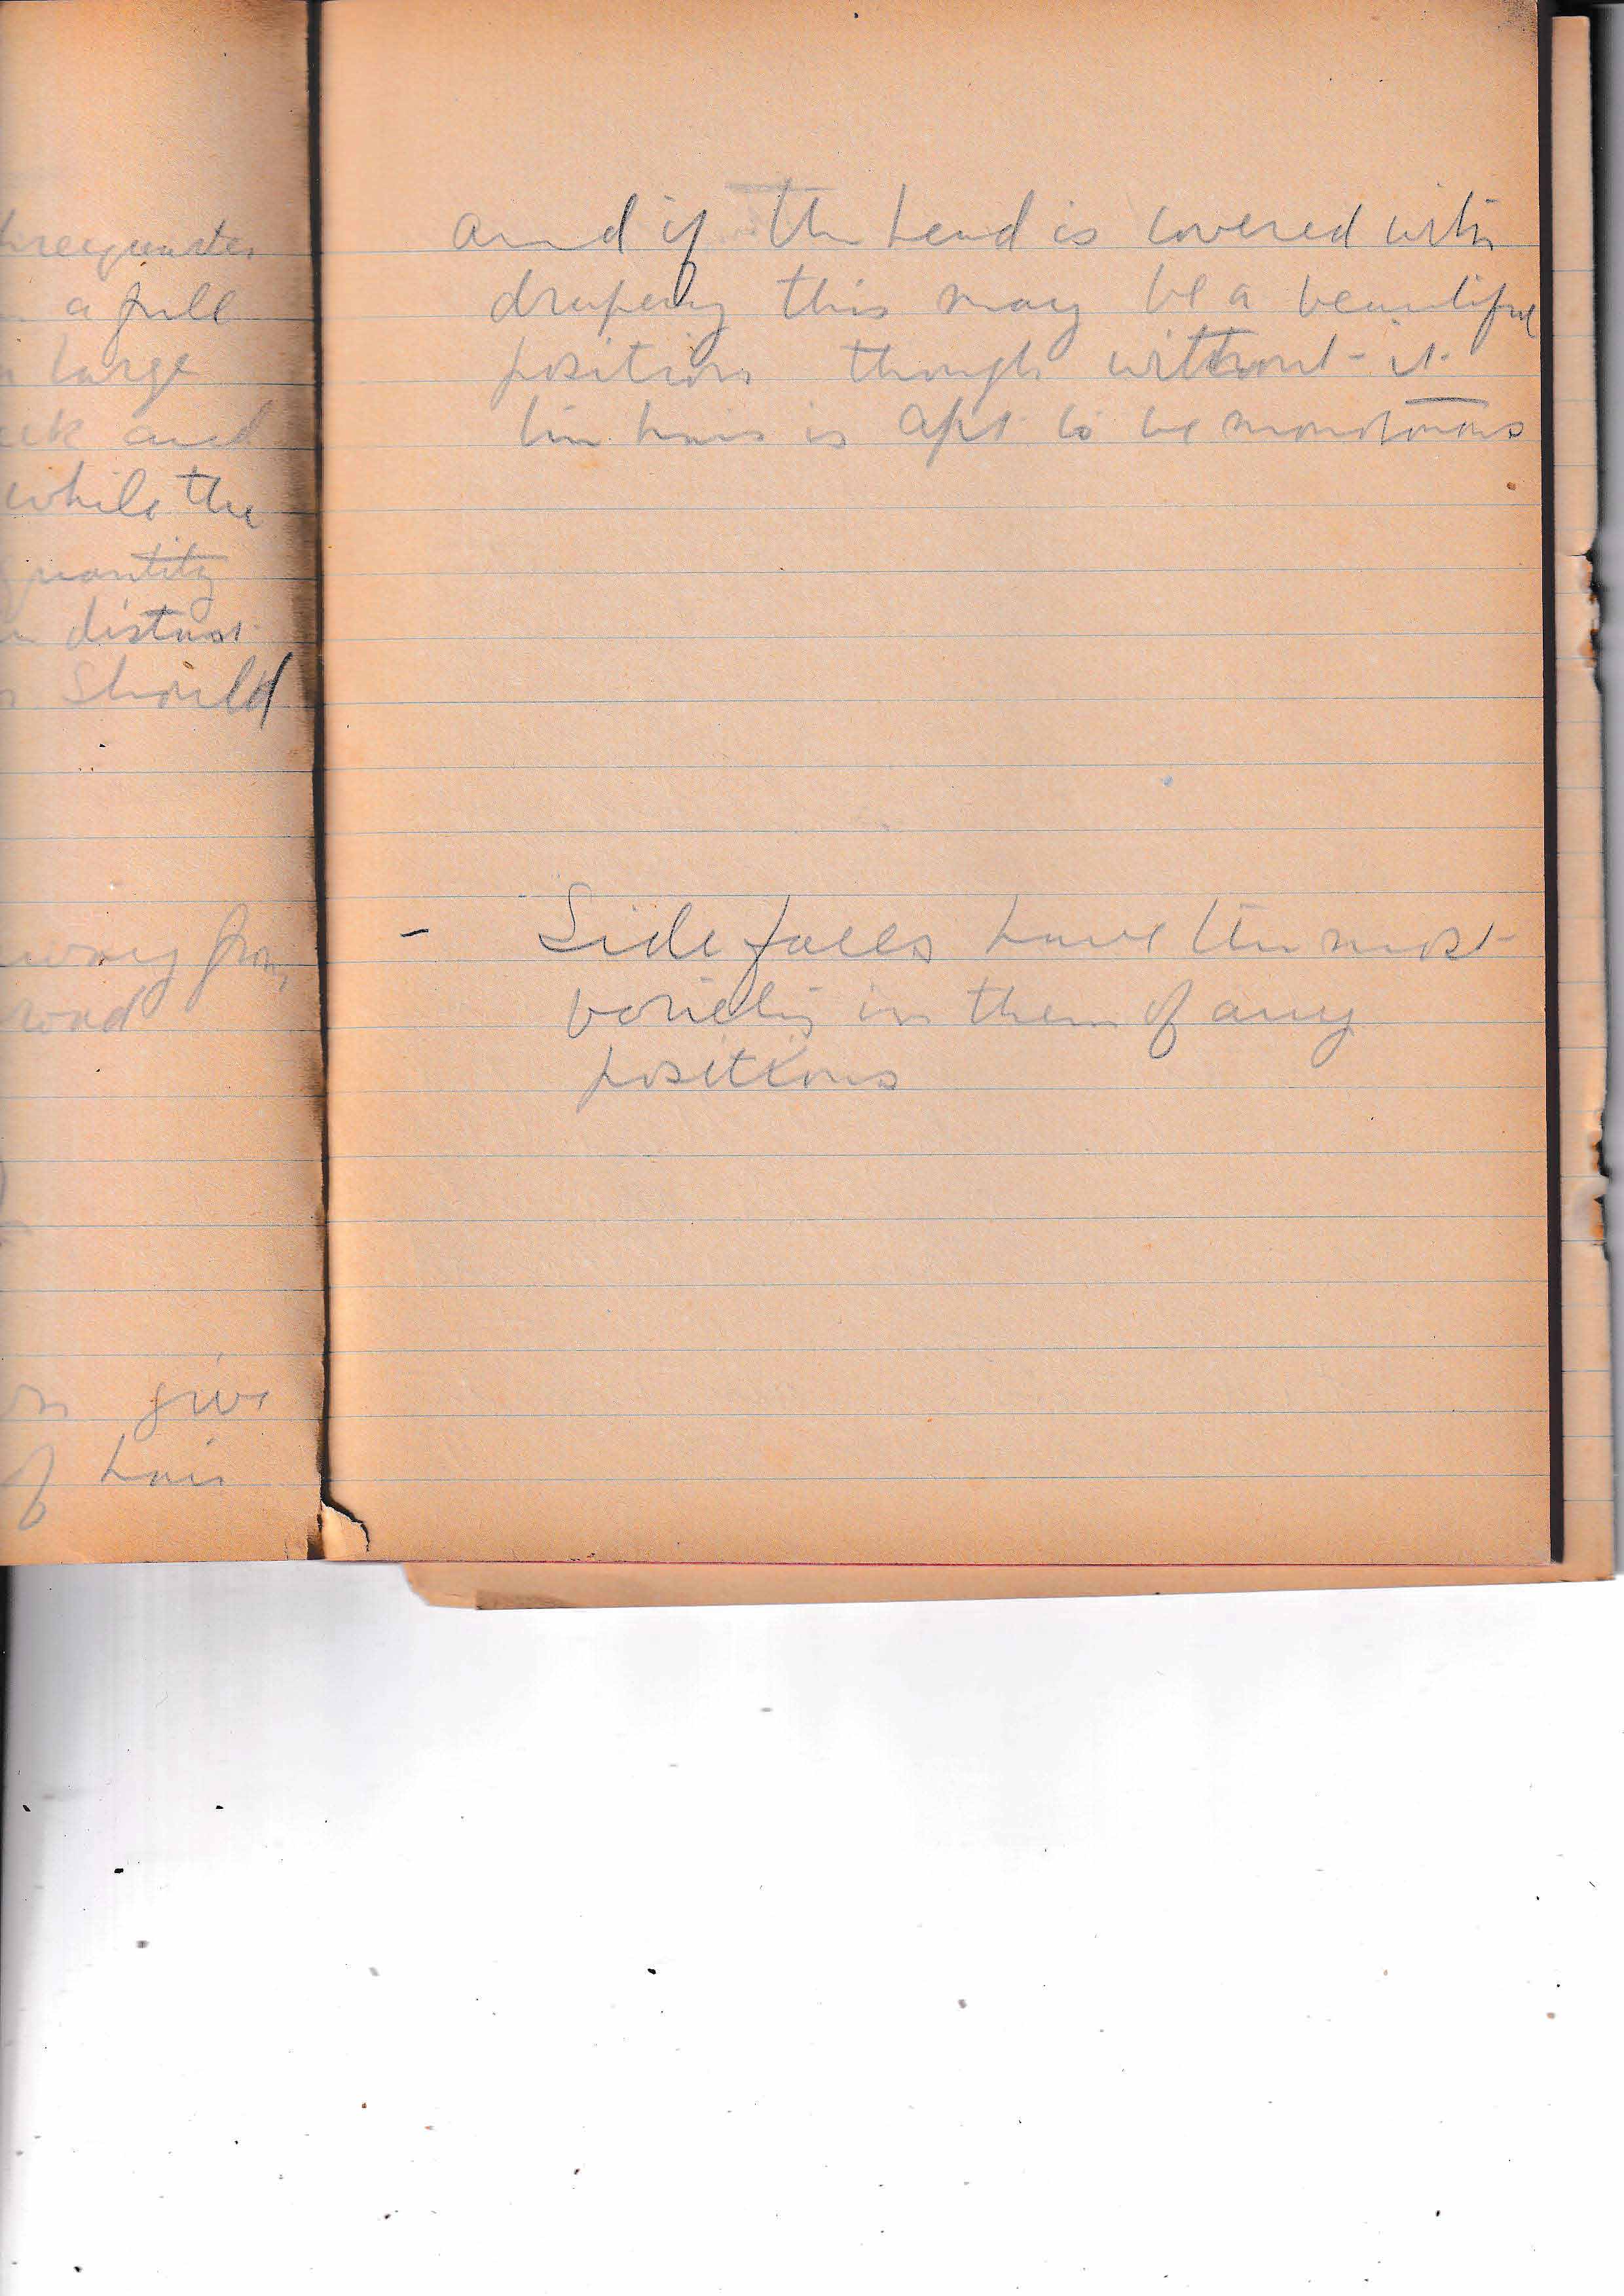 threequarter
a full
large
and
while the
quantity
distant
should
away from
road
give
of hair
and if the head is covered with
drapery this may be a beautiful
position though without it
the hair is apt to be monotonous
- Side faces have the most
variety in them of any
positions